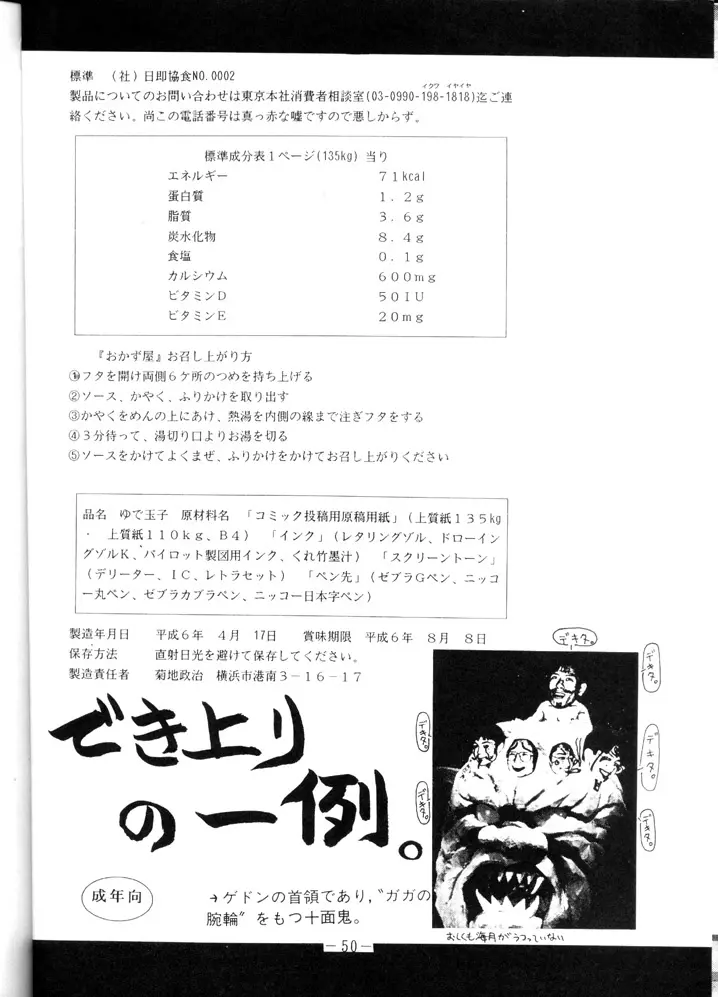 標準　（社）日即協食NO.0002
イクワ　イヤイヤ
製品についてのお問い合わせは東京本社消費者相談室(03-0990-198-1818)迄ご連
絡ください。尚この電話番号は真っ赤な嘘ですので悪しからず。
標準成分表１ページ(135kg) 当り
エネルギー　７１kcal
蛋白質　１．２g
脂質　３．６g
炭水化物　８．４g
食塩　０．１g
カルシウム　６００mg
ビタミンＤ　５０ＩＵ
ビタミンＥ　２０mg
『おかず屋』お召し上がり方
①フタを開け両側６ケ所のつめを持ち上げる
②ソース、かやく、ふりかけを取り出す
③かやくをめんの上にあけ、熱湯を内側の線まで注ぎフタをする
④３分待って、湯切り口よりお湯を切る
⑤ソースをかけてよくまぜ、ふりかけをかけてお召し上がりください
品名　ゆで玉子　原材料名　「コミック投稿用原稿用紙」（上質紙１３５kg
・　上質紙１１０kg、Ｂ４）　「インク」（レタリングゾル、ドローイン
グゾルＫ、パイロット製図用インク、くれ竹墨汁）　「スクリーントーン」
（デリーター、ＩＣ、レトラセット）　「ペン先」（ゼブラＧペン、ニッコ
ー丸ペン、ゼブラカブラペン、ニッコー日本字ペン）
製造年月日　平成６年　４月　17日　賞味期限　平成６年　８月　８日
保存方法　直射日光を避けて保存してください。
製造責任者　菊地政治　横浜市港南３－１６－１７
でき上り
の一例。
デキタ。
デキタ。
デキタ。
デキタ。
デキタ。
デキタ。
成年向
→ゲドンの首領であり，〝ガガの
腕輪〟をもつ十面鬼。
おしくも海月がうつっていない
－50－